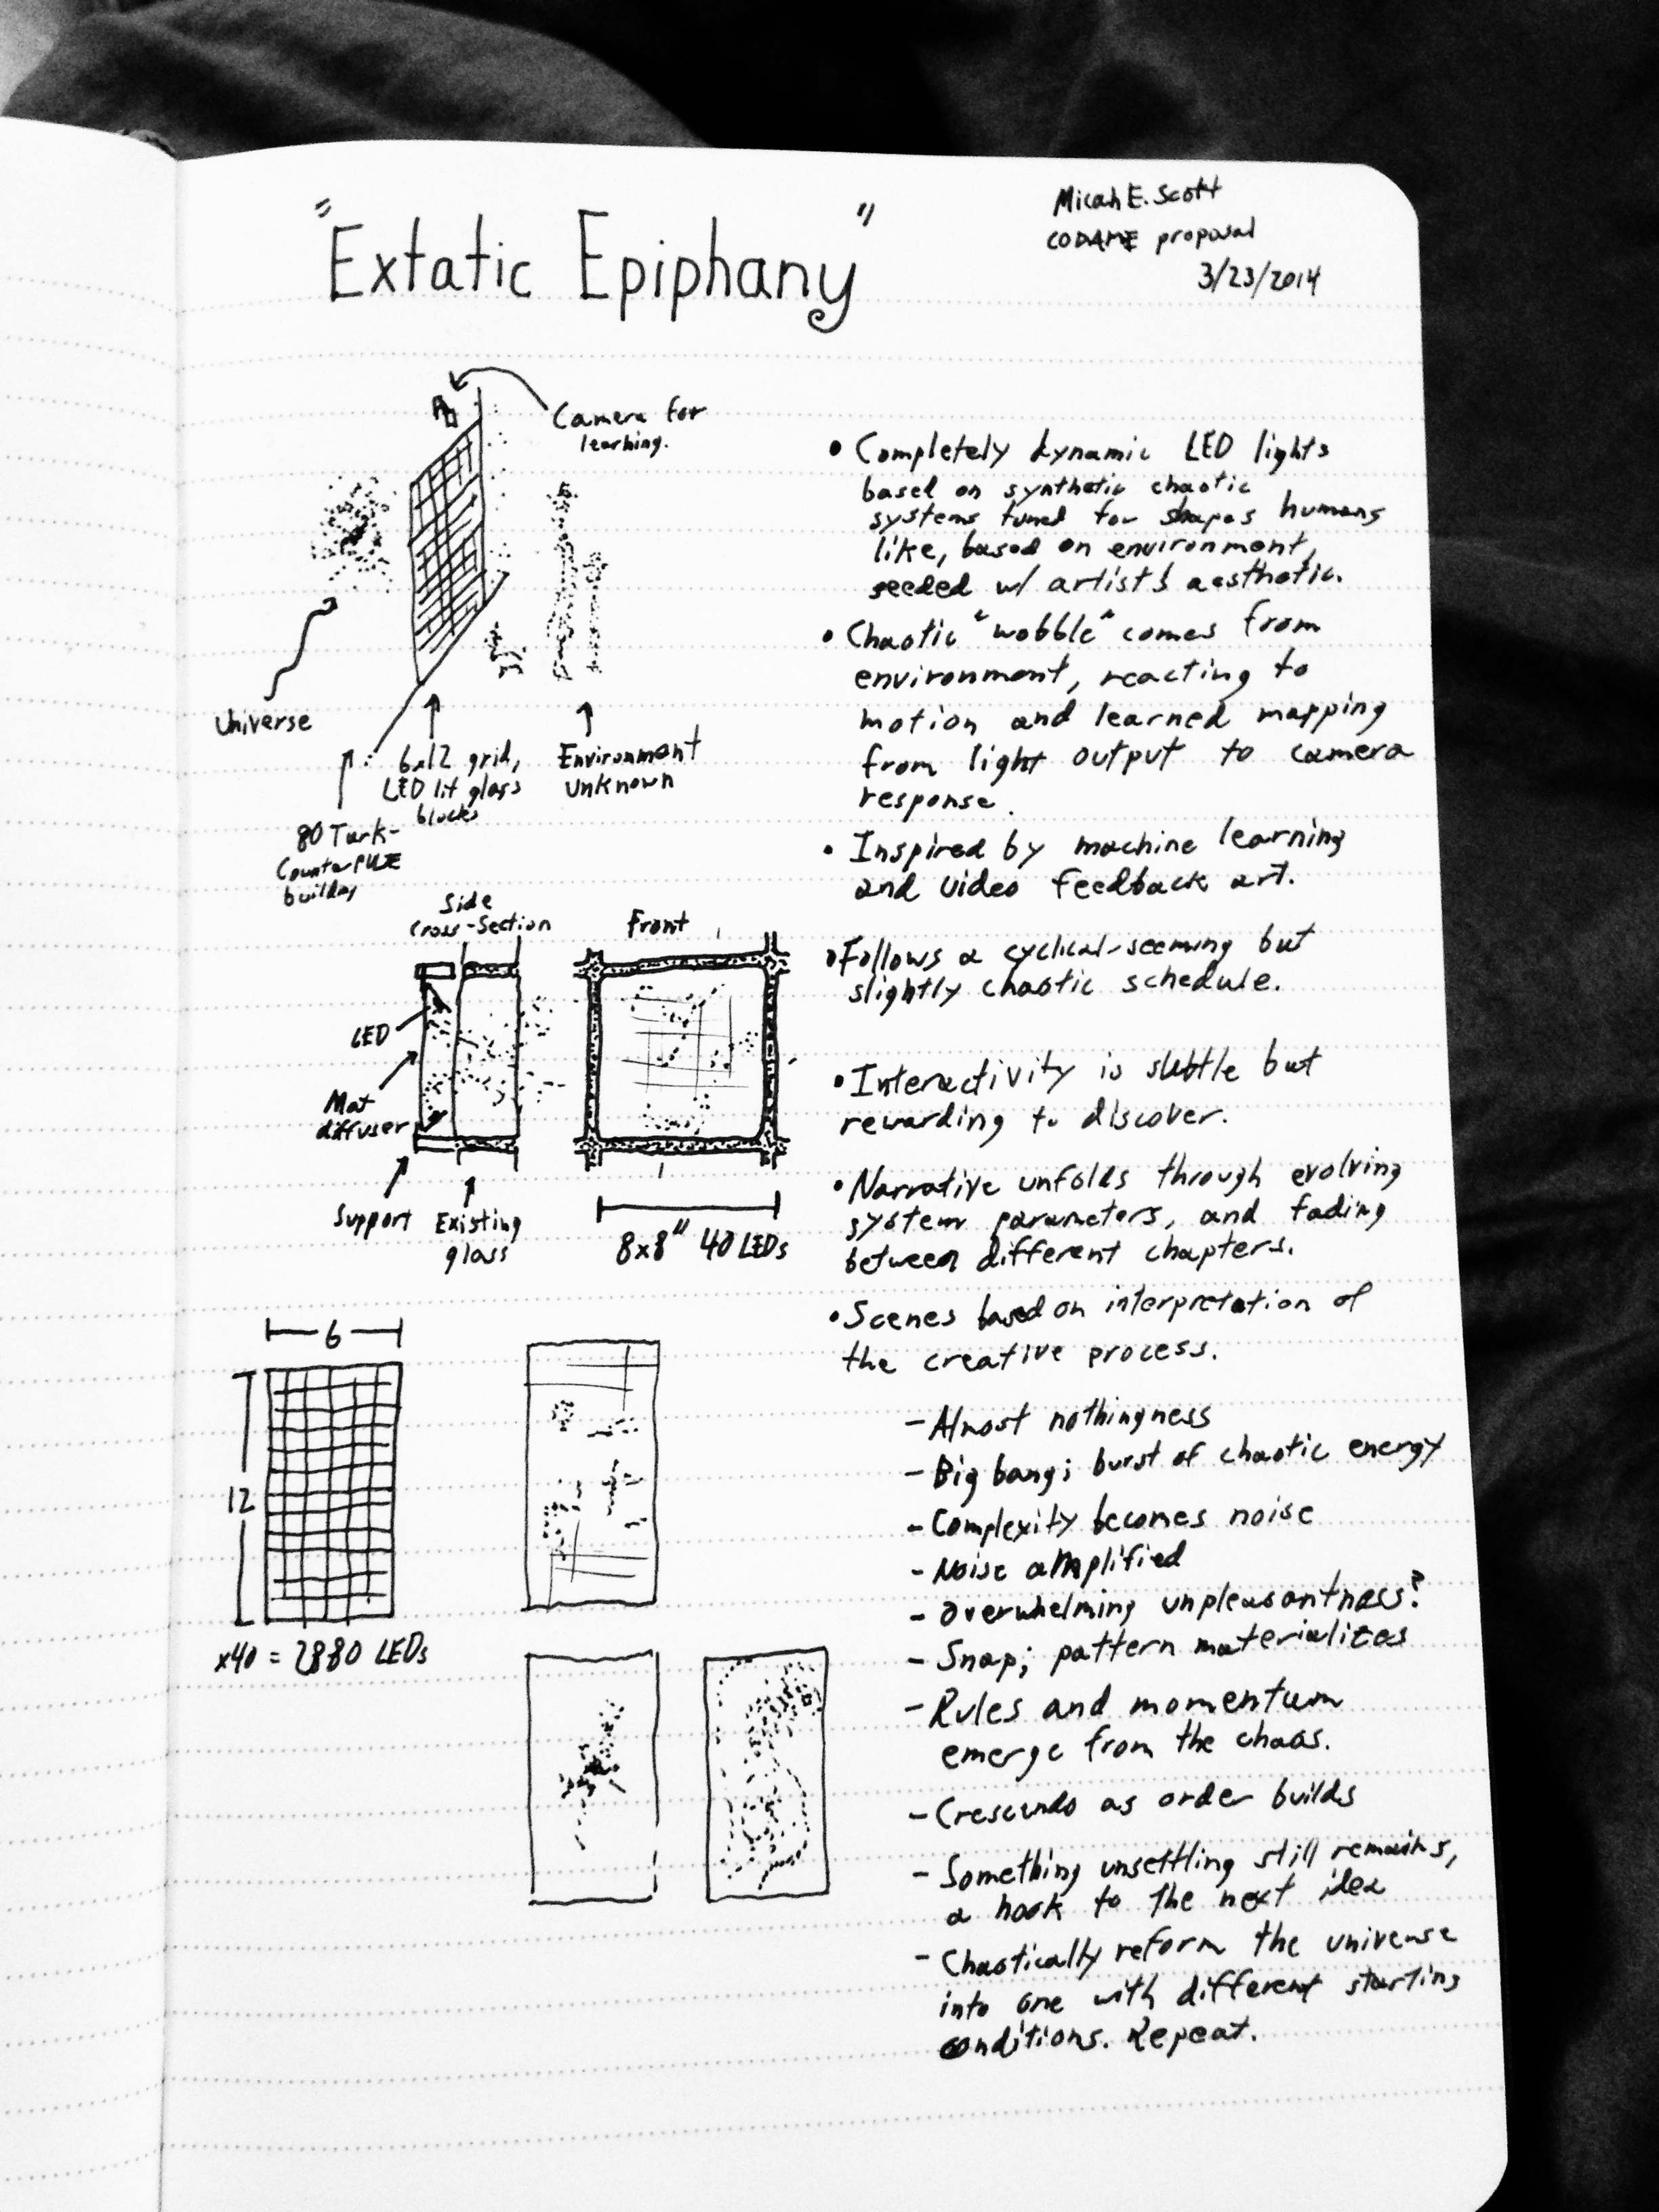 "Extatic Epiphany"
Micah E. Scott
CODAME proposal
3/23/2014
Camera for
learning.
Universe
6x12 grid,
LED lit glass
blocks
Environment
unknown
80 Turk-
CounterPULSE
building
Side
Cross-Section
Front
LED
Mat
diffuser
Support
Existing
glass
8x8" 40 LEDs
6
12
x40 = 2880 LEDs
• Completely dynamic LED lights
based on synthetic chaotic
systems tuned for shapes humans
like, based on environment,
seeded w/ artist's aesthetic.
• Chaotic "wobble" comes from
environment, reacting to
motion and learned mapping
from light output to camera
response.
• Inspired by machine learning
and video feedback art.
• Follows a cyclical-seeming but
slightly chaotic schedule.
• Interactivity is subtle but
rewarding to discover.
• Narrative unfolds through evolving
system parameters, and fading
between different chapters.
• Scenes based on interpretation of
the creative process.
- Almost nothingness
- Big bang; burst of chaotic energy
- Complexity becomes noise
- Noise amplified
- Overwhelming unpleasantness?
- Snap; pattern materializes
- Rules and momentum
emerge from the chaos.
- Crescendo as order builds
- Something unsettling still remains,
a hook to the next idea
- Chaotically reform the universe
into one with different starting
conditions. Repeat.